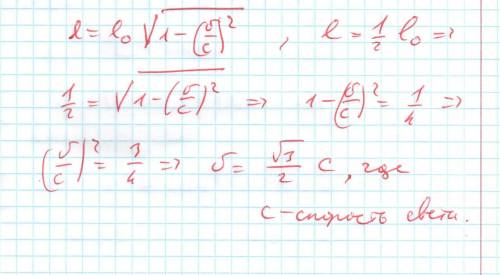 l = l₀ √(1 - (υ/c)²) , l = 1/2 l₀ =>
1/2 = √(1 - (υ/c)²) => 1 - (υ/c)² = 1/4 =>
(υ/c)² = 3/4 => υ = √3/2 c, где
c - скорость света.